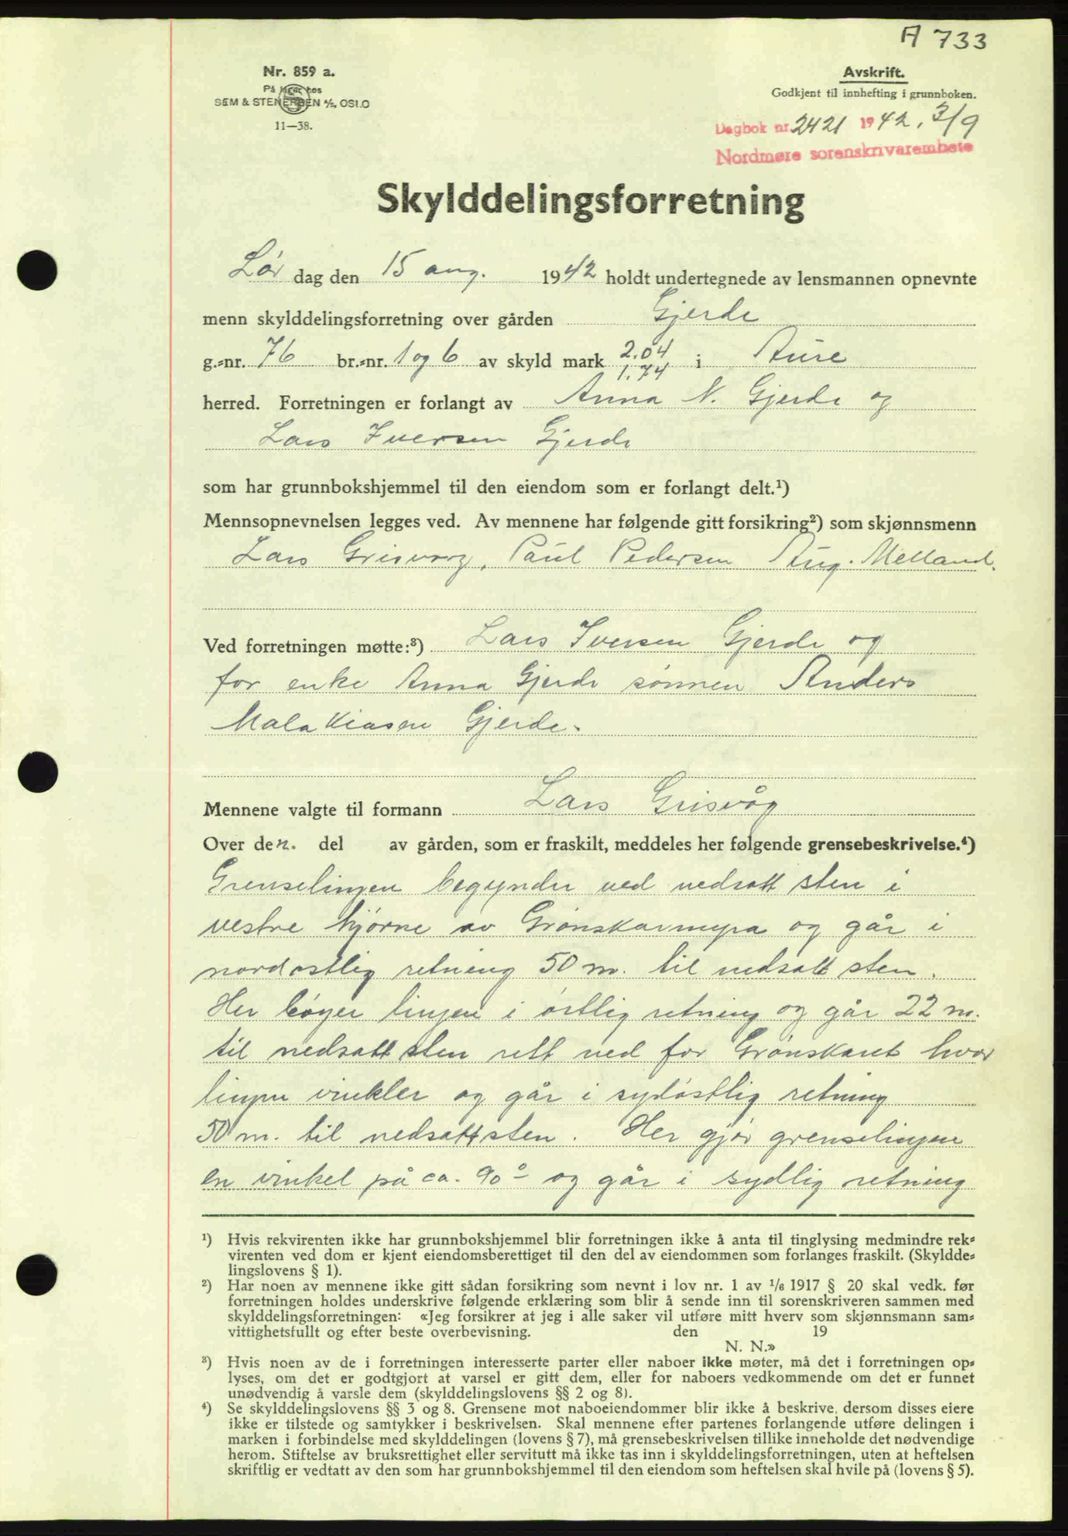 A 733
Nr. 859 a.
På lager hos
SEM & STENERSEN A/S, OSLO
11—38.
Avskrift.
Godkjent til innhefting i grunnboken.
Dagbok nr. 2421 1942, 3/9
Nordmøre sorenskrivarembete
Skylddelingsforretning
Lør dag den 15 aug. 1942 holdt undertegnede av lensmannen opnevnte
menn skylddelingsforretning over gården Gjerde
g.-nr. 76 br.-nr. 1 og 6 av skyld mark 2.04 1.74 i Aure
herred. Forretningen er forlangt av Anna N. Gjerde og
Lars Iversen Gjerde
som har grunnbokshjemmel til den eiendom som er forlangt delt.¹)
Mennsopnevnelsen legges ved. Av mennene har følgende gitt forsikring²) som skjønnsmenn
Lars Grisvåg, Paul Pedersen Aug. Melland.
Ved forretningen møtte:³) Lars Iversen Gjerde og
for enke Anna Gjerde sønnen Anders
Malakiasen Gjerde.
Mennene valgte til formann Lars Grisvåg
Over den. del av gården, som er fraskilt, meddeles her følgende grensebeskrivelse.⁴)
Grenselinjen begynder ved nedsatt sten i
vestre hjørne av Grønskarmyra og går i
nordøstlig retning 50 m. til nedsatt sten.
Her bøyer linjen i østlig retning og går 22 m.
til nedsatt sten rett ned for Grønskaret hvor
linjen vinkler og går i sydøstlig retning
50 m. til nedsatt sten. Her gjør grenselinjen
en vinkel på ca. 90° og går i sydlig retning
¹) Hvis rekvirenten ikke har grunnbokshjemmel blir forretningen ikke å anta til tinglysing medmindre rek-
virenten ved dom er kjent eiendomsberettiget til den del av eiendommen som forlanges fraskilt. (Skyldde-
lingslovens § 1).
²) Har noen av mennene ikke gitt sådan forsikring som nevnt i lov nr. 1 av 1/6 1917 § 20 skal vedk. før
forretningen holdes underskrive følgende erklæring som blir å sende inn til sorenskriveren sammen med
skylddelingsforretningen: «Jeg forsikrer at jeg i alle saker vil utføre mitt hverv som skjønnsmann sam-
vittighetsfullt og efter beste overbevisning. den 19
N. N.»
³) Hvis noen av de i forretningen interesserte parter eller naboer ikke møter, må det i forretningen op-
lyses, om det er godtgjort at varsel er gitt dem, eller for naboers vedkommende om det er funnet
unødvendig å varsle dem (skylddelingslovens §§ 2 og 8).
⁴) Se skylddelingslovens §§ 3 og 8. Grensene mot naboeiendommer blir ikke å beskrive, dersom disses eiere
ikke er tilstede og samtykker i beskrivelsen. Skal mennene efter partenes forlangende utføre delingen i
marken i forbindelse med skylddelingen (lovens § 7), må grensebeskrivelsen tillike inneholde det nødvendige
herom. Stiftelse av bruksrettighet eller servitutt må ikke tas inn i skylddelingsforretningen, uten at heftelsen
skriftlig er vedtatt av den som har grunnbokshjemmel til den eiendom som heftelsen skal hvile på (lovens § 5).